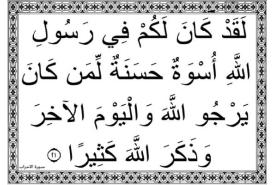 لَقَدْ كَانَ لَكُمْ فِي رَسُولِ
اللَّهِ أُسْوَةٌ حَسَنَةٌ لِّمَن كَانَ
يَرْجُو اللَّهَ وَالْيَوْمَ الآخِرَ
وَذَكَرَ اللَّهَ كَثِيرًا ٢١
سورة الأحزاب